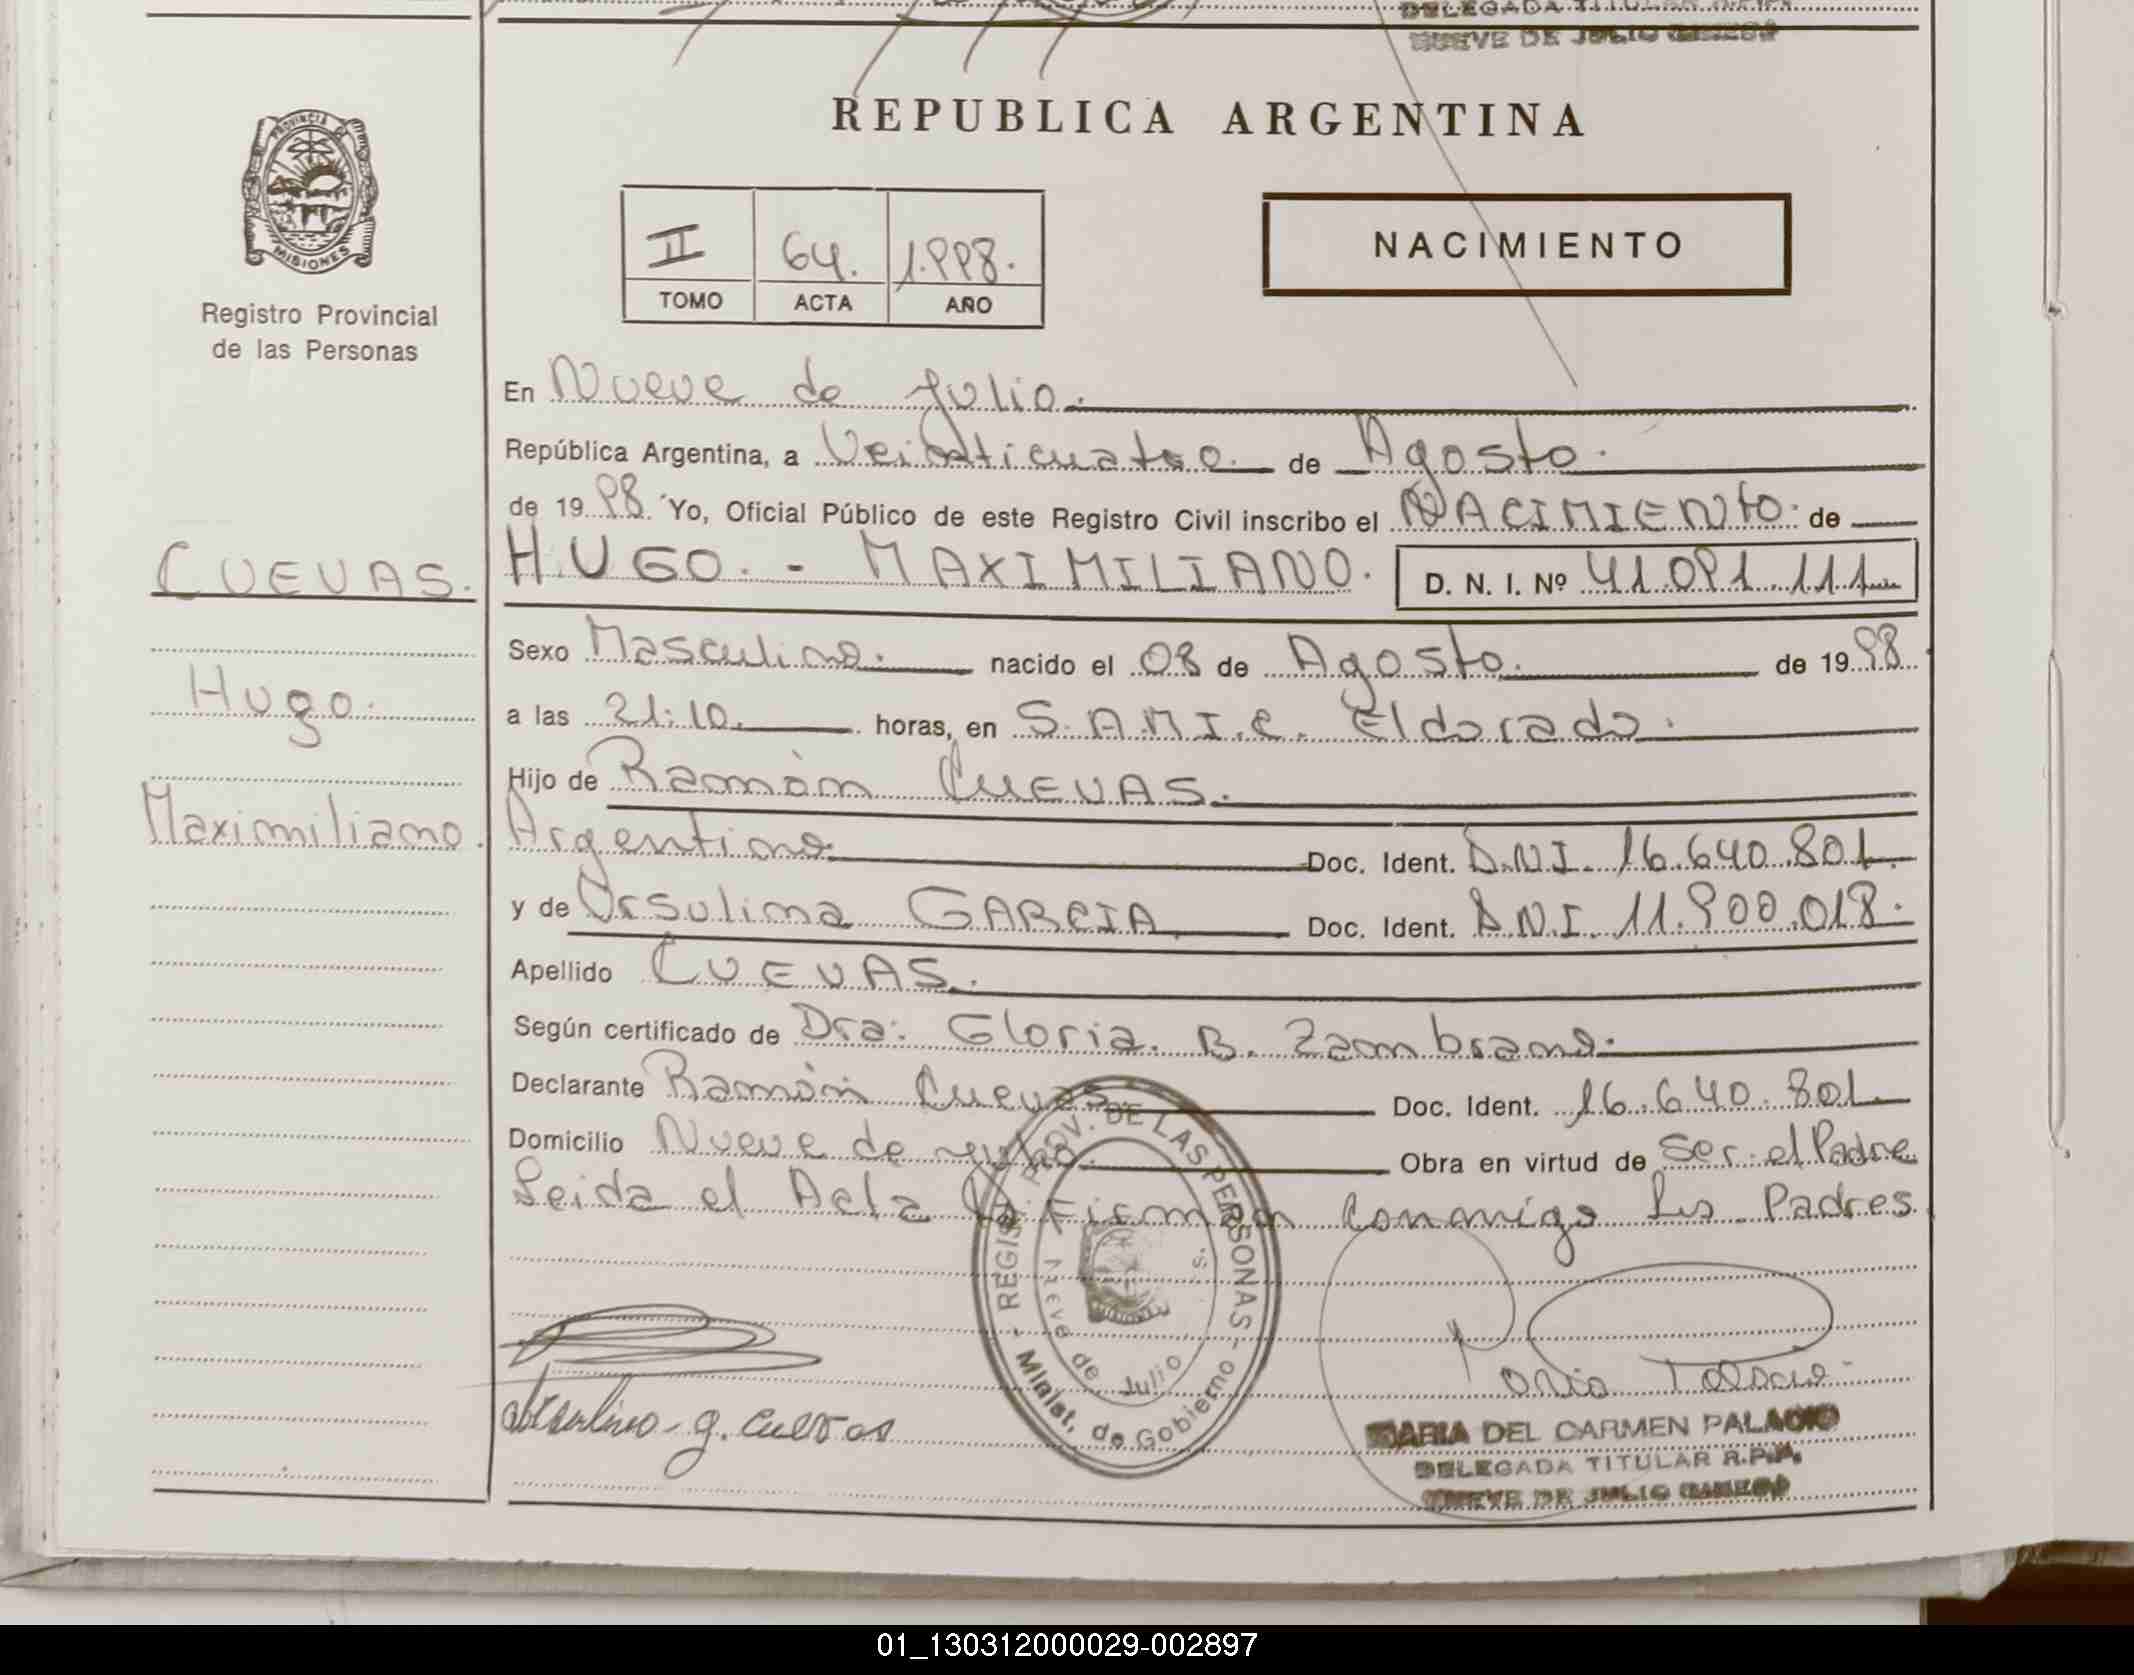 DELEGADA TITULAR R.P.P.
NUEVE DE JULIO
REPUBLICA ARGENTINA
PROVINCIA DE
MISIONES
Registro Provincial
de las Personas
II 64. 1.998.
TOMO ACTA AÑO
NACIMIENTO
En Nueve de Julio.
República Argentina, a Veinticuatro. de Agosto.
de 19 98. Yo, Oficial Público de este Registro Civil inscribo el NACIMIENTO. de
CUEVAS. HUGO. - MAXIMILIANO. D. N. I. Nº 41.091.111
Sexo Masculino. nacido el 08 de Agosto. de 19 98.
Hugo. a las 21:10. horas, en S.A.M.I.C. Eldorado.
Hijo de Ramón CUEVAS.
Maximiliano. Argentino. Doc. Ident. D.N.I. 16.640.801.
y de Ursulina GARCIA. Doc. Ident. D.N.I. 11.900.018.
Apellido CUEVAS.
Según certificado de Dra: Gloria. B. Zambrano.
Declarante Ramón Cuevas. Doc. Ident. 16.640.801.
Domicilio Nueve de Julio. Obra en virtud de ser el Padre
Leida el Acta la Firman conmigo los Padres.
REGIST. PROV. DE LAS PERSONAS - Minist. de Gobierno -
Nueve de Julio
g. cuevas
MARIA DEL CARMEN PALACIO
DELEGADA TITULAR R.P.P.
NUEVE DE JULIO
01_130312000029-002897